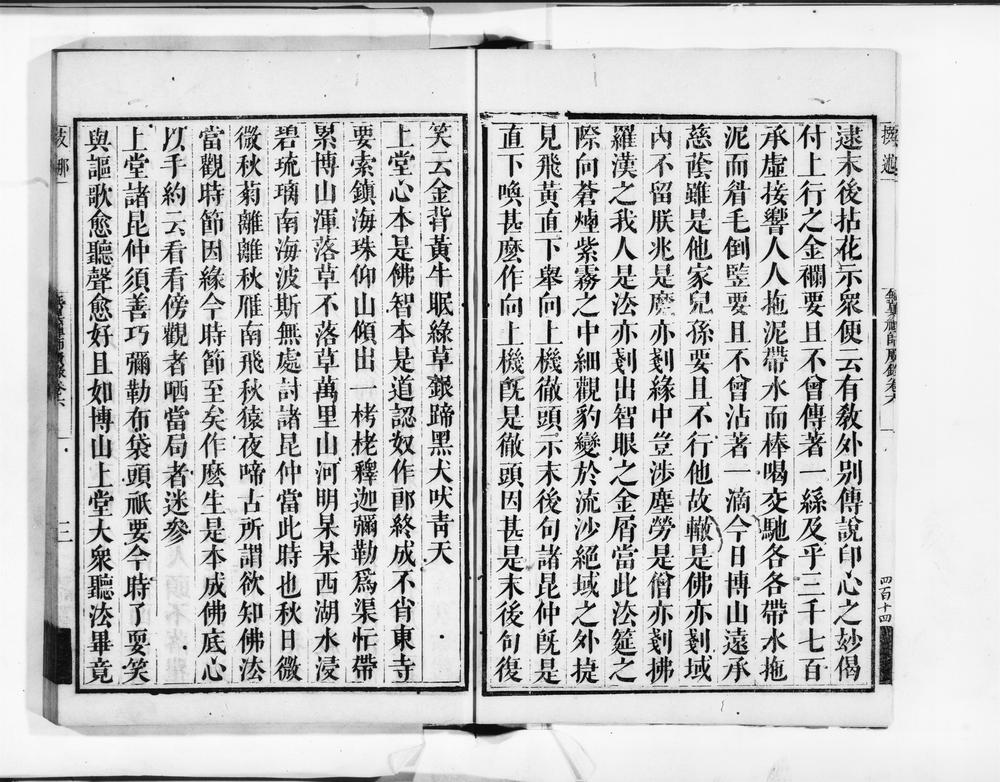 逮末後拈花示眾便云有敎外別傳說印心之妙偈
付上行之金襴要且不曾傳著一絲及乎三千七百
承虛接響人人拖泥帶水而棒喝交馳各各帶水拖
泥而眉毛倒豎要且不曾沾著一滴今日博山遠承
慈蔭雖是他家兒孫要且不行他故轍是佛亦剗域
內不留朕兆是魔亦剗緣中豈涉塵勞是僧亦剗拂
羅漢之我人是法亦剗出智眼之金屑當此法筵之
際向蒼煙紫霧之中細觀豹變於流沙絕域之外捷
見飛黃直下舉向上機徹頭示末後句諸昆仲旣是
直下喚甚麼作向上機旣是徹頭因甚是末後句復
笑云金背黃牛眠綠草銀蹄黑犬吠靑天
上堂心本是佛智本是道認奴作郎終成不肖東寺
要索鎮海珠仰山傾出一栲栳釋迦彌勒爲渠忙帶
累博山渾落草不落草萬里山河明杲杲西湖水浸
碧琉璃南海波斯無處討諸昆仲當此時也秋日微
微秋菊離離秋雁南飛秋猿夜啼古所謂欲知佛法
當觀時節因緣今時節至矣作麼生是本成佛底心
以手約云看看傍觀者哂當局者迷參
上堂諸昆仲須善巧彌勒布袋頭祇要今時了耍笑
與謳歌愈聽聲愈好且如博山上堂大衆聽法畢竟
四百十四
三